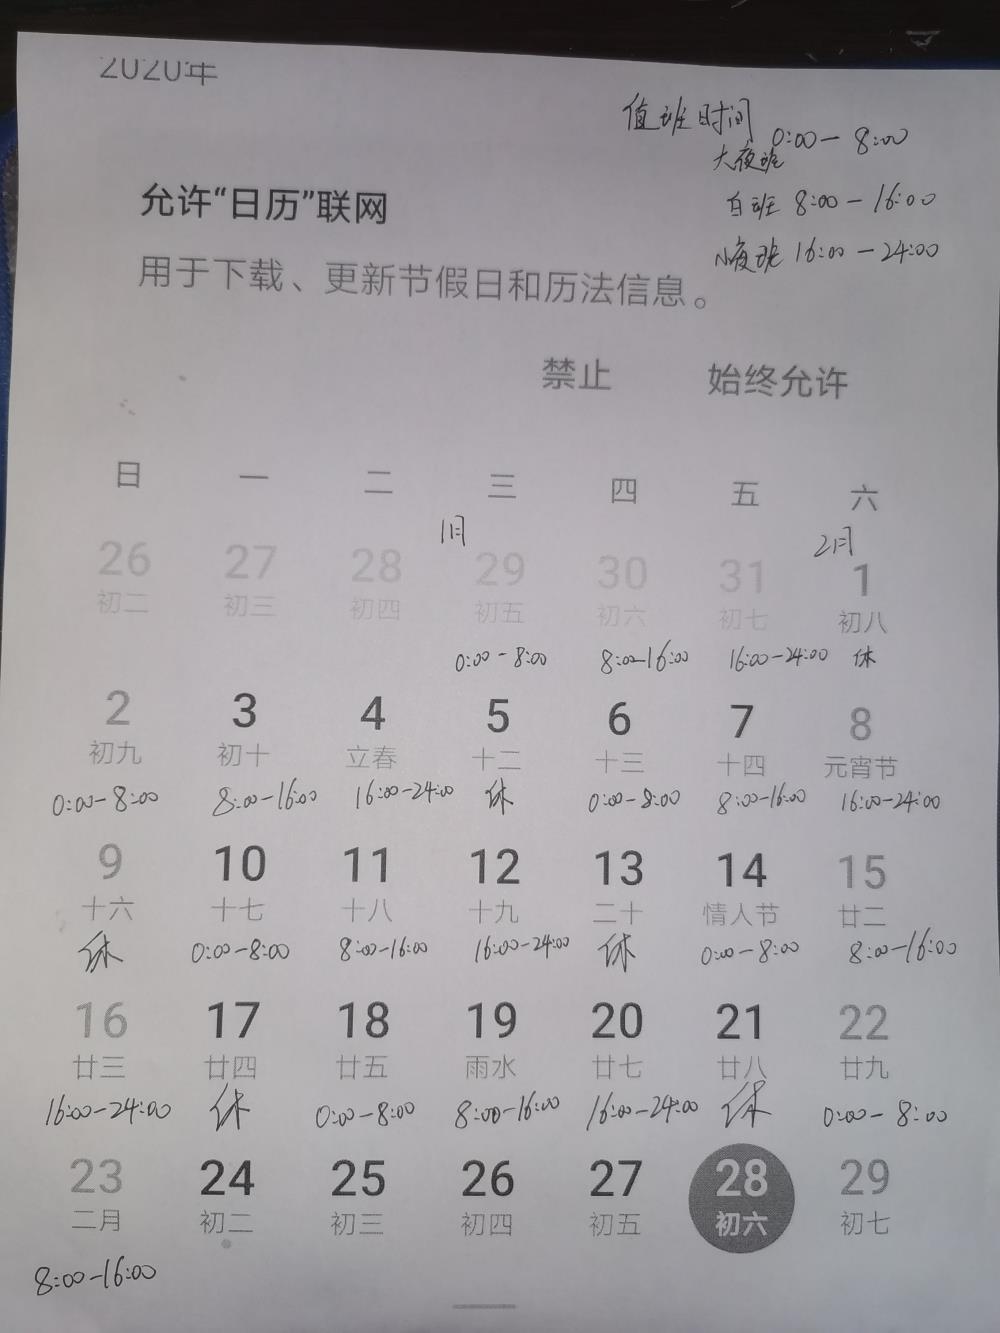 2020年
值班时间
大夜班 0:00-8:00
白班 8:00-16:00
小夜班 16:00-24:00
允许“日历”联网
用于下载、更新节假日和历法信息。
禁止 始终允许
日 一 二 三 四 五 六
1月 2月
26 27 28 29 30 31 1
初二 初三 初四 初五 初六 初七 初八
0:00-8:00 8:00-16:00 16:00-24:00 休
2 3 4 5 6 7 8
初九 初十 立春 十二 十三 十四 元宵节
0:00-8:00 8:00-16:00 16:00-24:00 休 0:00-8:00 8:00-16:00 16:00-24:00
9 10 11 12 13 14 15
十六 十七 十八 十九 二十 情人节 廿二
休 0:00-8:00 8:00-16:00 16:00-24:00 休 0:00-8:00 8:00-16:00
16 17 18 19 20 21 22
廿三 廿四 廿五 雨水 廿七 廿八 廿九
16:00-24:00 休 0:00-8:00 8:00-16:00 16:00-24:00 休 0:00-8:00
23 24 25 26 27 28 29
二月 初二 初三 初四 初五 初六 初七
8:00-16:00